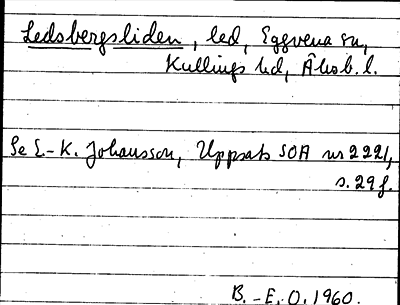 Ledsbergsliden, led, Eggvena sn,
Kullings hd, Älvsb. l.
Se L-K. Johansson, Uppsats SOA nr 2221,
s. 29 f.
B.-E. O. 1960.